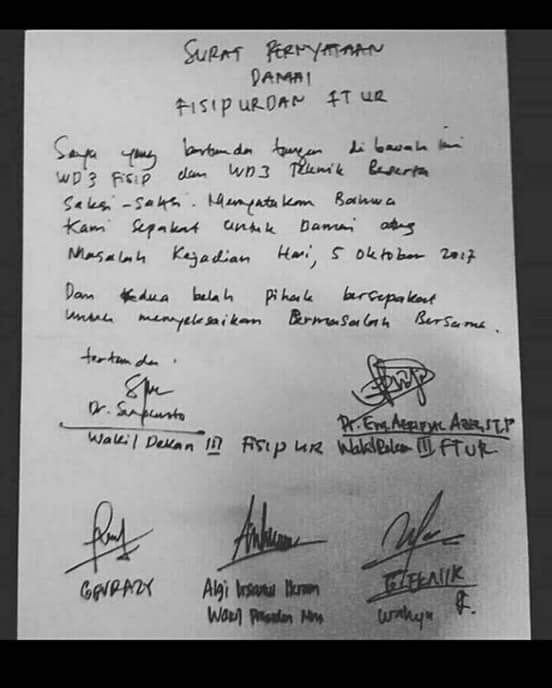 SURAT PERNYATAAN
DAMAI
FISIP UR DAN FT UR
Saya yang bertanda tangan di bawah ini
WD3 FISIP dan WD3 Teknik Beserta
Saksi-Saksi. Menyatakan Bahwa
Kami Sepakat untuk Damai atas
Masalah Kejadian Hari, 5 Oktober 2017
Dan Kedua belah pihak bersepakat
untuk menyelesaikan Bermasalah Bersama.
tertanda.
Dr.
Wakil Dekan III FISIP UR Wakil Dekan III FTUR
GEVRAZY
Algi
Wakil Presiden
Wahyu